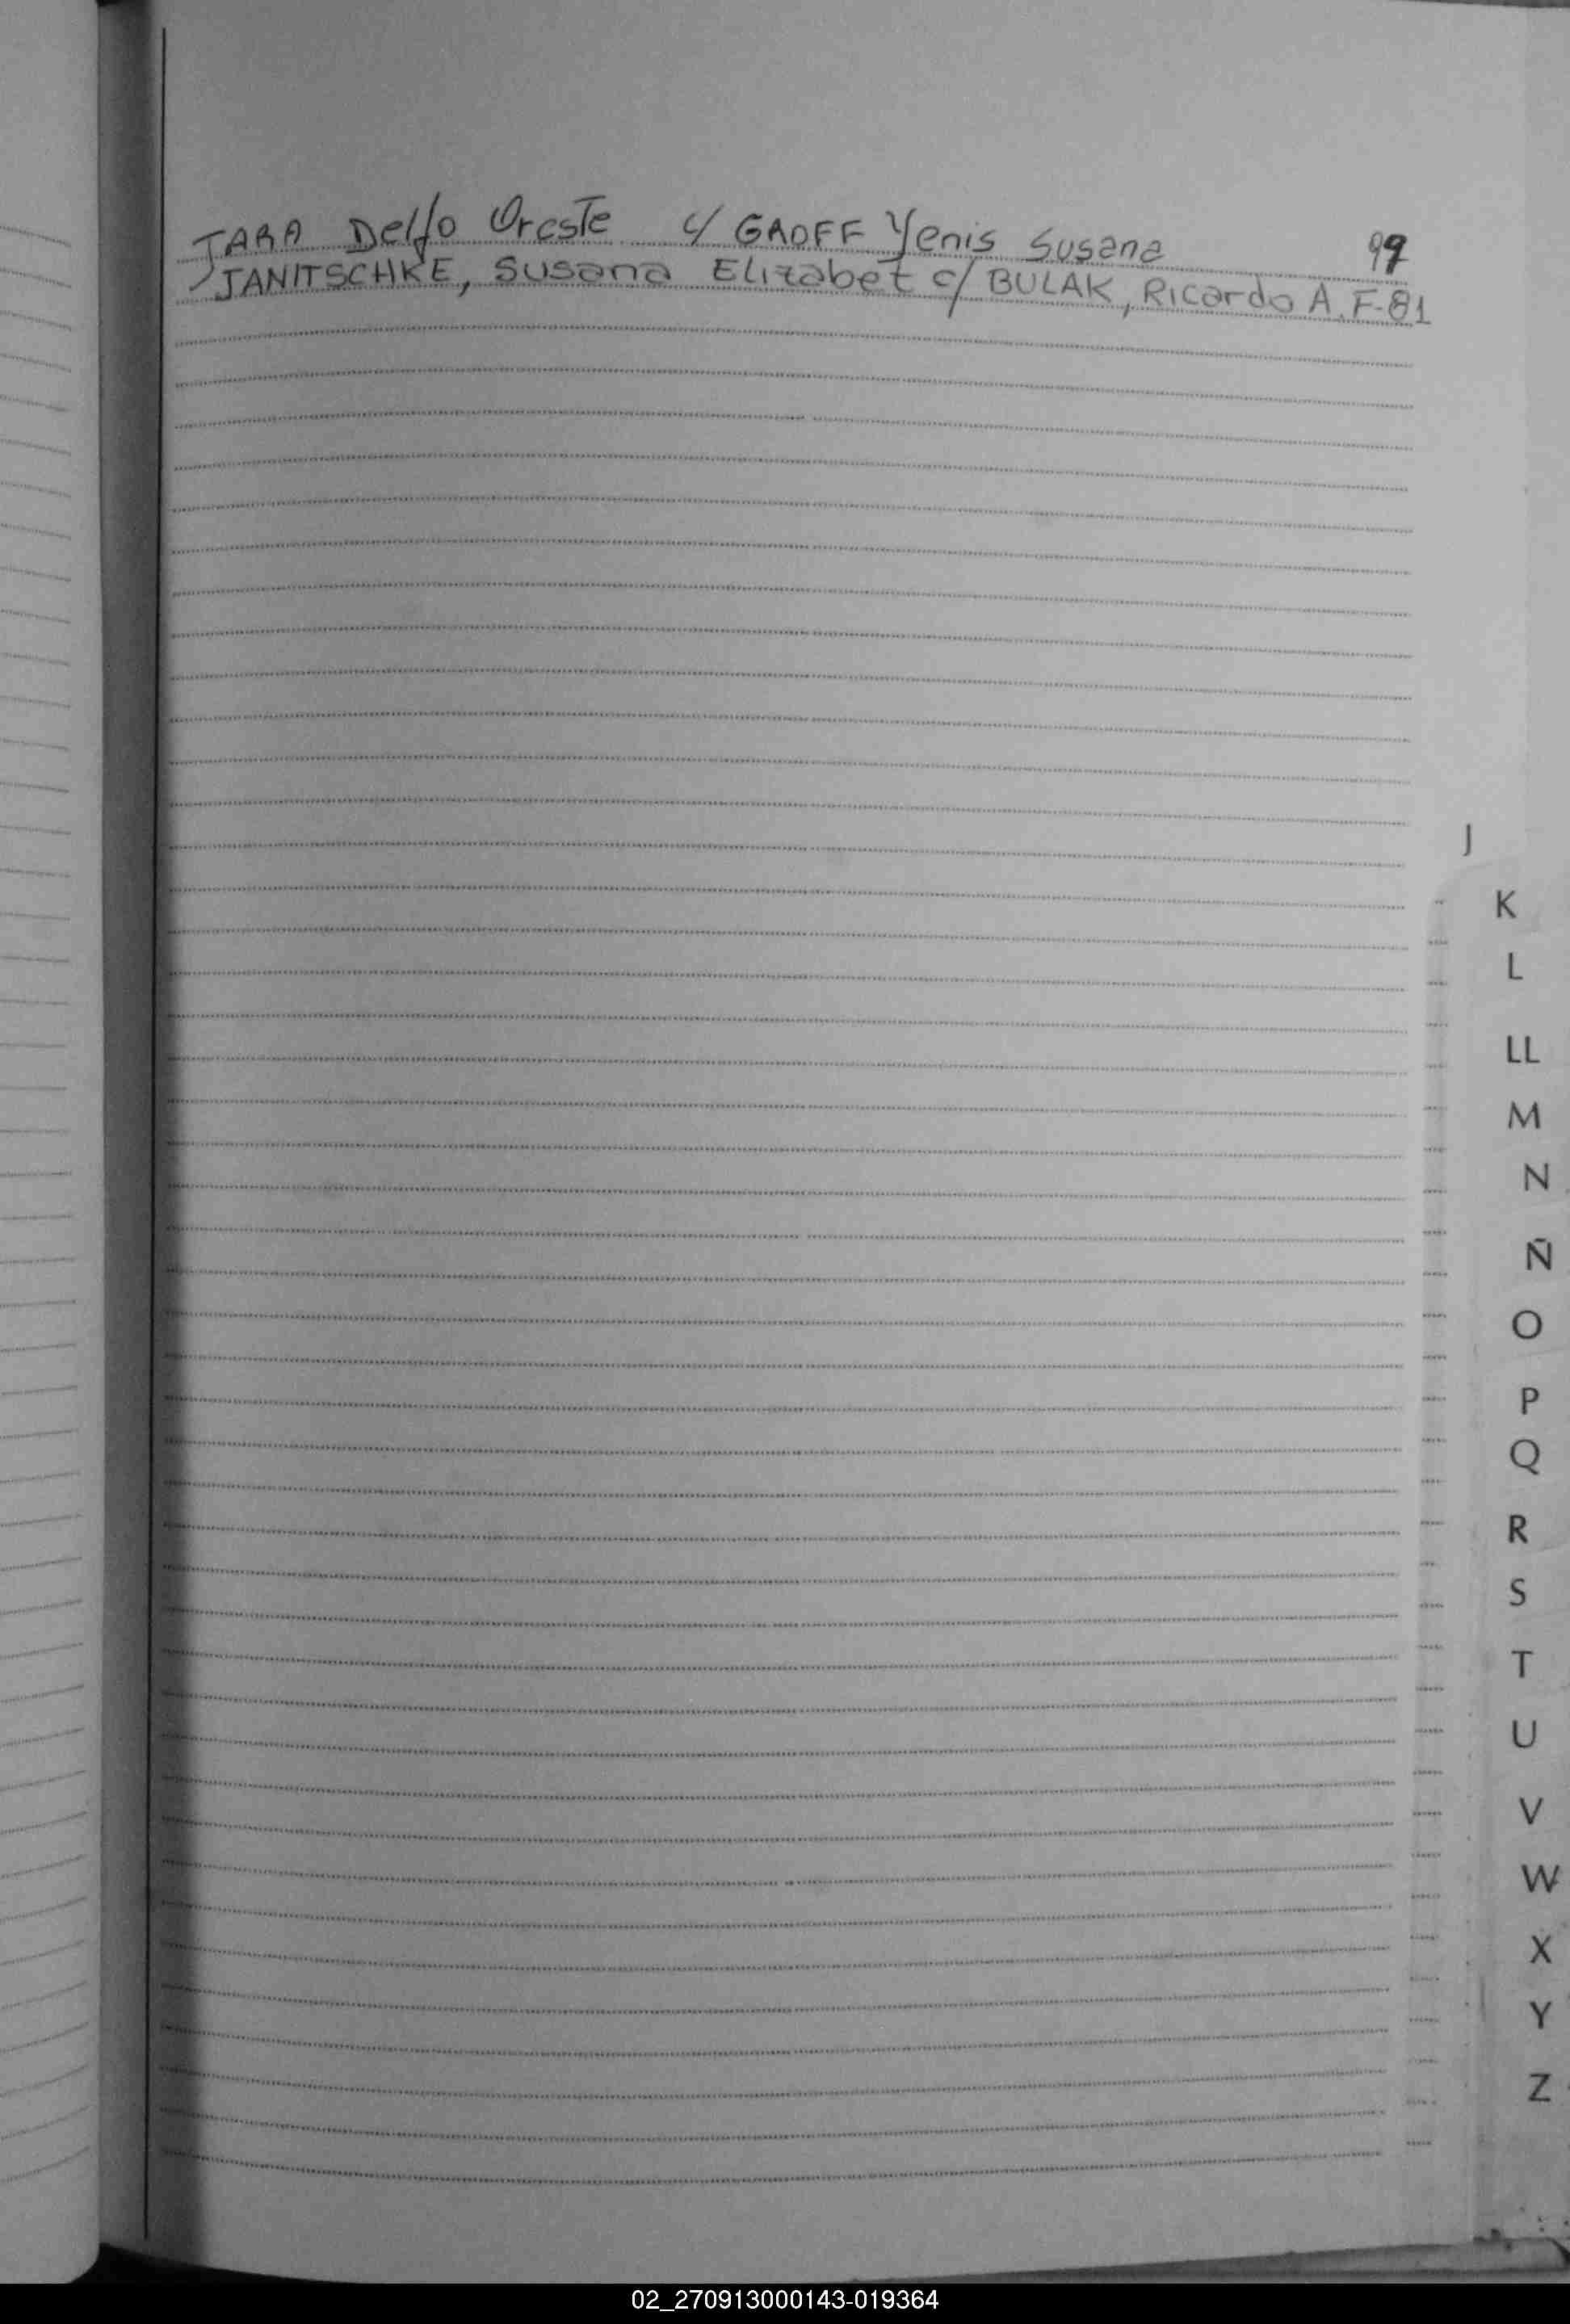 JARA Delfo Oreste c/ GAOFF Yenis Susana 97
JANITSCHKE, Susana Elizabet c/ BULAK, Ricardo A. F-81
J
K
L
LL
M
N
Ñ
O
P
Q
R
S
T
U
V
W
X
Y
Z
02_270913000143-019364